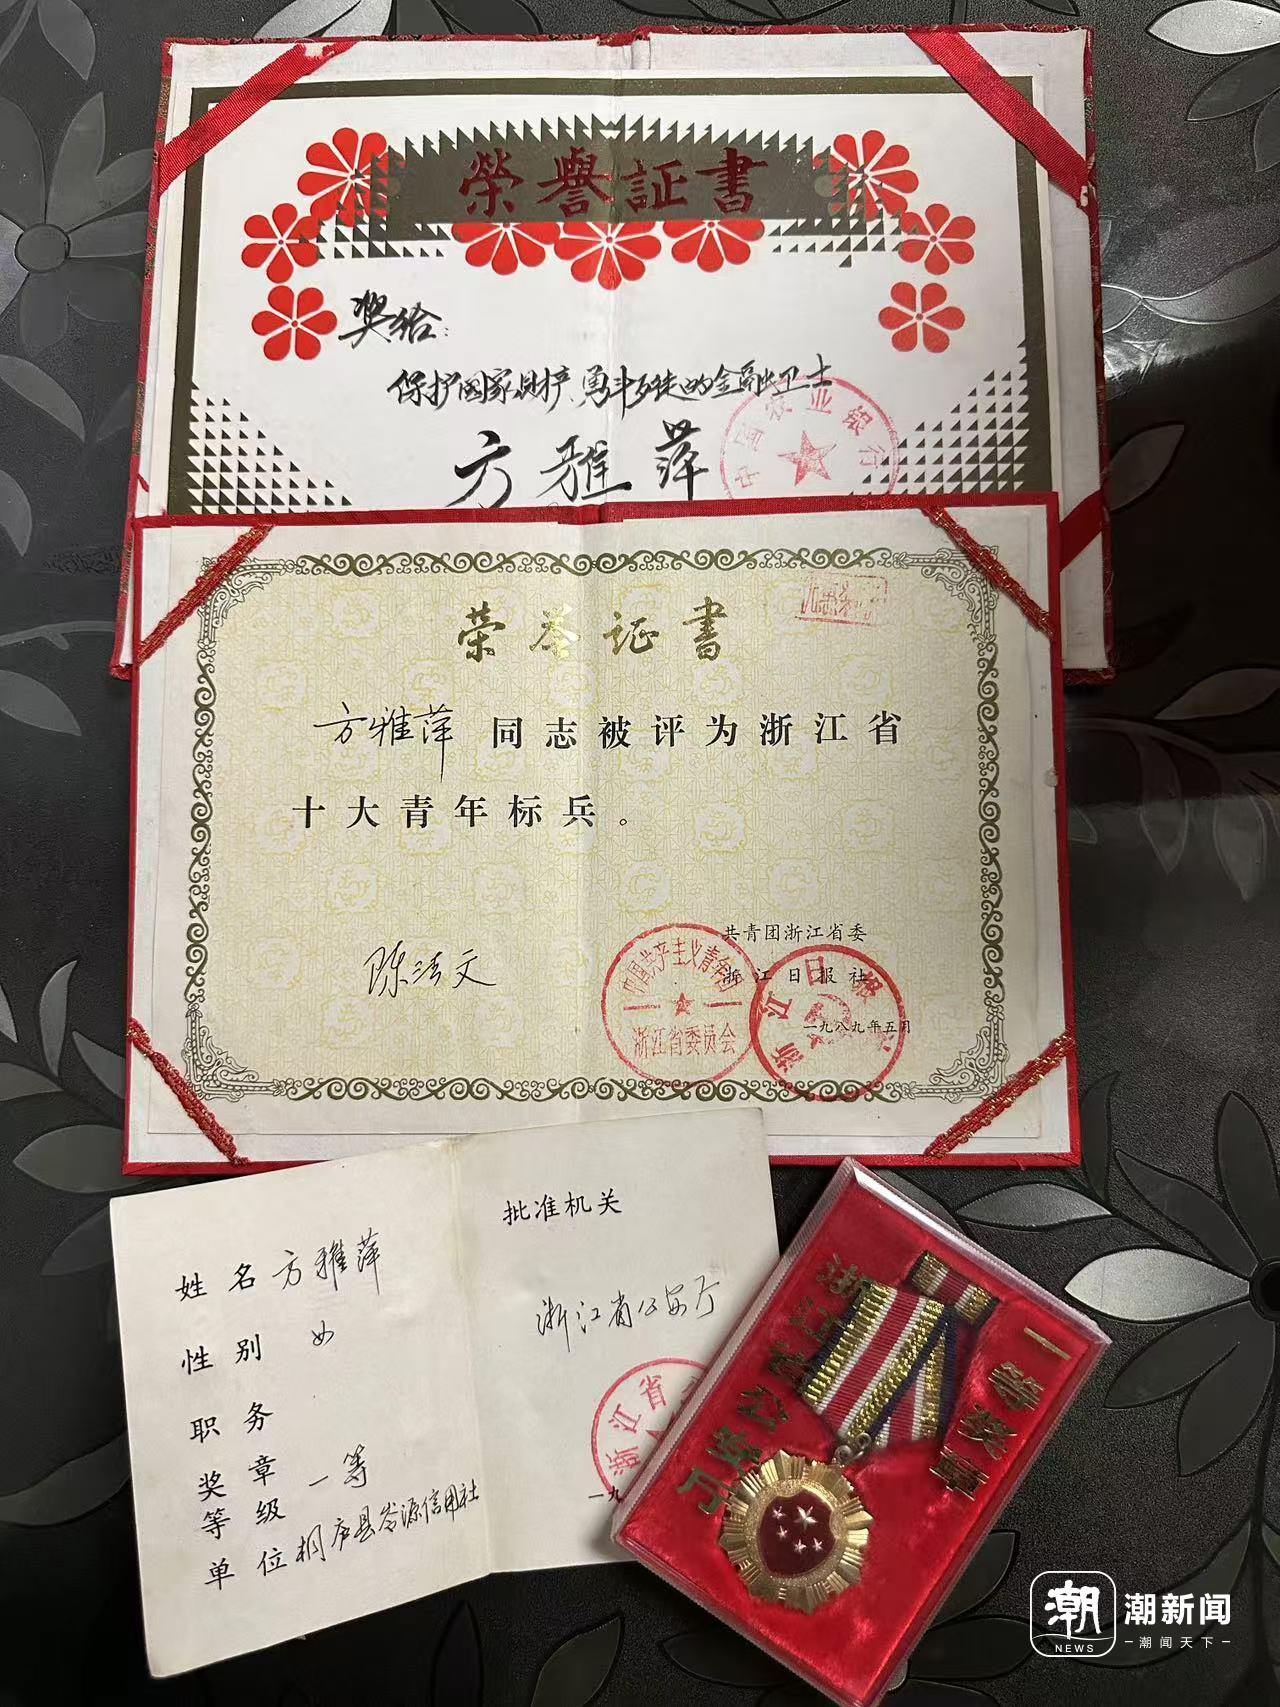 榮譽証書
奖给:
保护国家财产、勇斗歹徒的金融卫士
中国农业银行
方雅萍
荣誉证书
方雅萍 同志被评为浙江省
十大青年标兵。
陈法文
共青团浙江省委
浙江日报社
一九八九年五月
中国共产主义青年团
浙江省委员会
浙江日报社
姓名 方雅萍
性别 女
职务
奖章等级 一等
单位 桐庐县岑源信用社
批准机关
浙江省公安厅
浙江省
一九
浙江省公安厅
一等奖章
潮
NEWS
潮新闻
潮闻天下